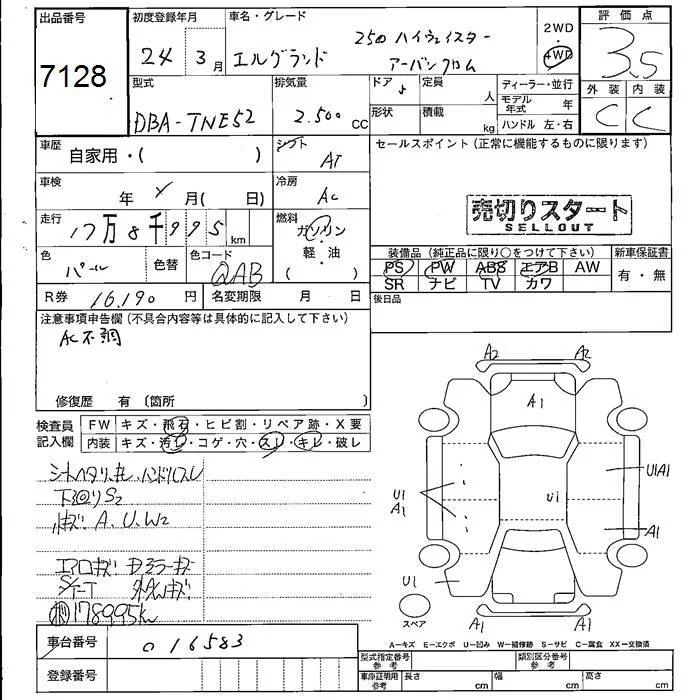 出品番号
7128
初度登録年月
24 3月
車名・グレード
エルグランド
250 ハイウェイスター
アーバンクロム
2WD
4WD
評価点
3.5
外装 内装
C C
型式
DBA-TNE52
排気量
2.500 CC
ドア
定員 人
形状
積載 kg
ディーラー・並行
モデル年式 年
ハンドル 左・右
車歴
自家用・( )
シフト
AT
セールスポイント (正常に機能するものに限ります)
売切りスタート
SELLOUT
車検
年 月 ( 日)
冷房
AC
走行
17万8千995 km
燃料
ガソリン
軽・油
( )
色
パール
色替
色コード
QAB
装備品 (純正品に限り○をつけて下さい)
PS PW ABS エアB AW
SR ナビ TV カワ
新車保証書
有・無
後日品
R券 16,190 円
名変期限 月 日
注意事項申告欄 (不具合内容等は具体的に記入して下さい)
AC不調
修復歴 有 〔箇所 〕
検査員
記入欄
FW キズ・飛石・ヒビ割・リペア跡・X要
内装 キズ・汚レ・コゲ・穴・スレ・キレ・破レ
シートヘタリ、キレ、ハンドルスレ
下回りS2
A、U、W2
エアロキズ ドアミラーキズ
178995km
A2 A2
A1
U1A1
U1
A1
U1
A1
U1
A1 A1
スペア
A-キズ E-エクボ U-凹み W-補修跡 S-サビ C-腐食 XX-交換済
車台番号
016583
登録番号
型式指定番号
参考
類別区分番号
参考
車庫証明用
参考
長さ cm
幅 cm
高さ cm